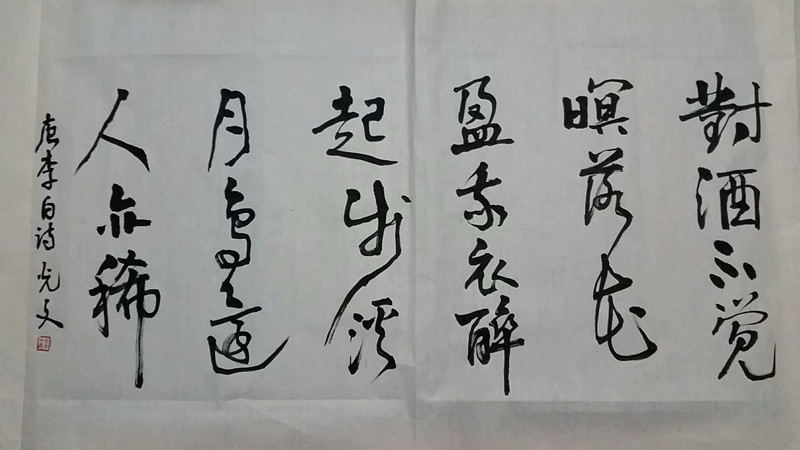 對酒不觉
暝落花
盈我衣醉
起步溪
月鳥還
人亦稀
唐李白诗 光文